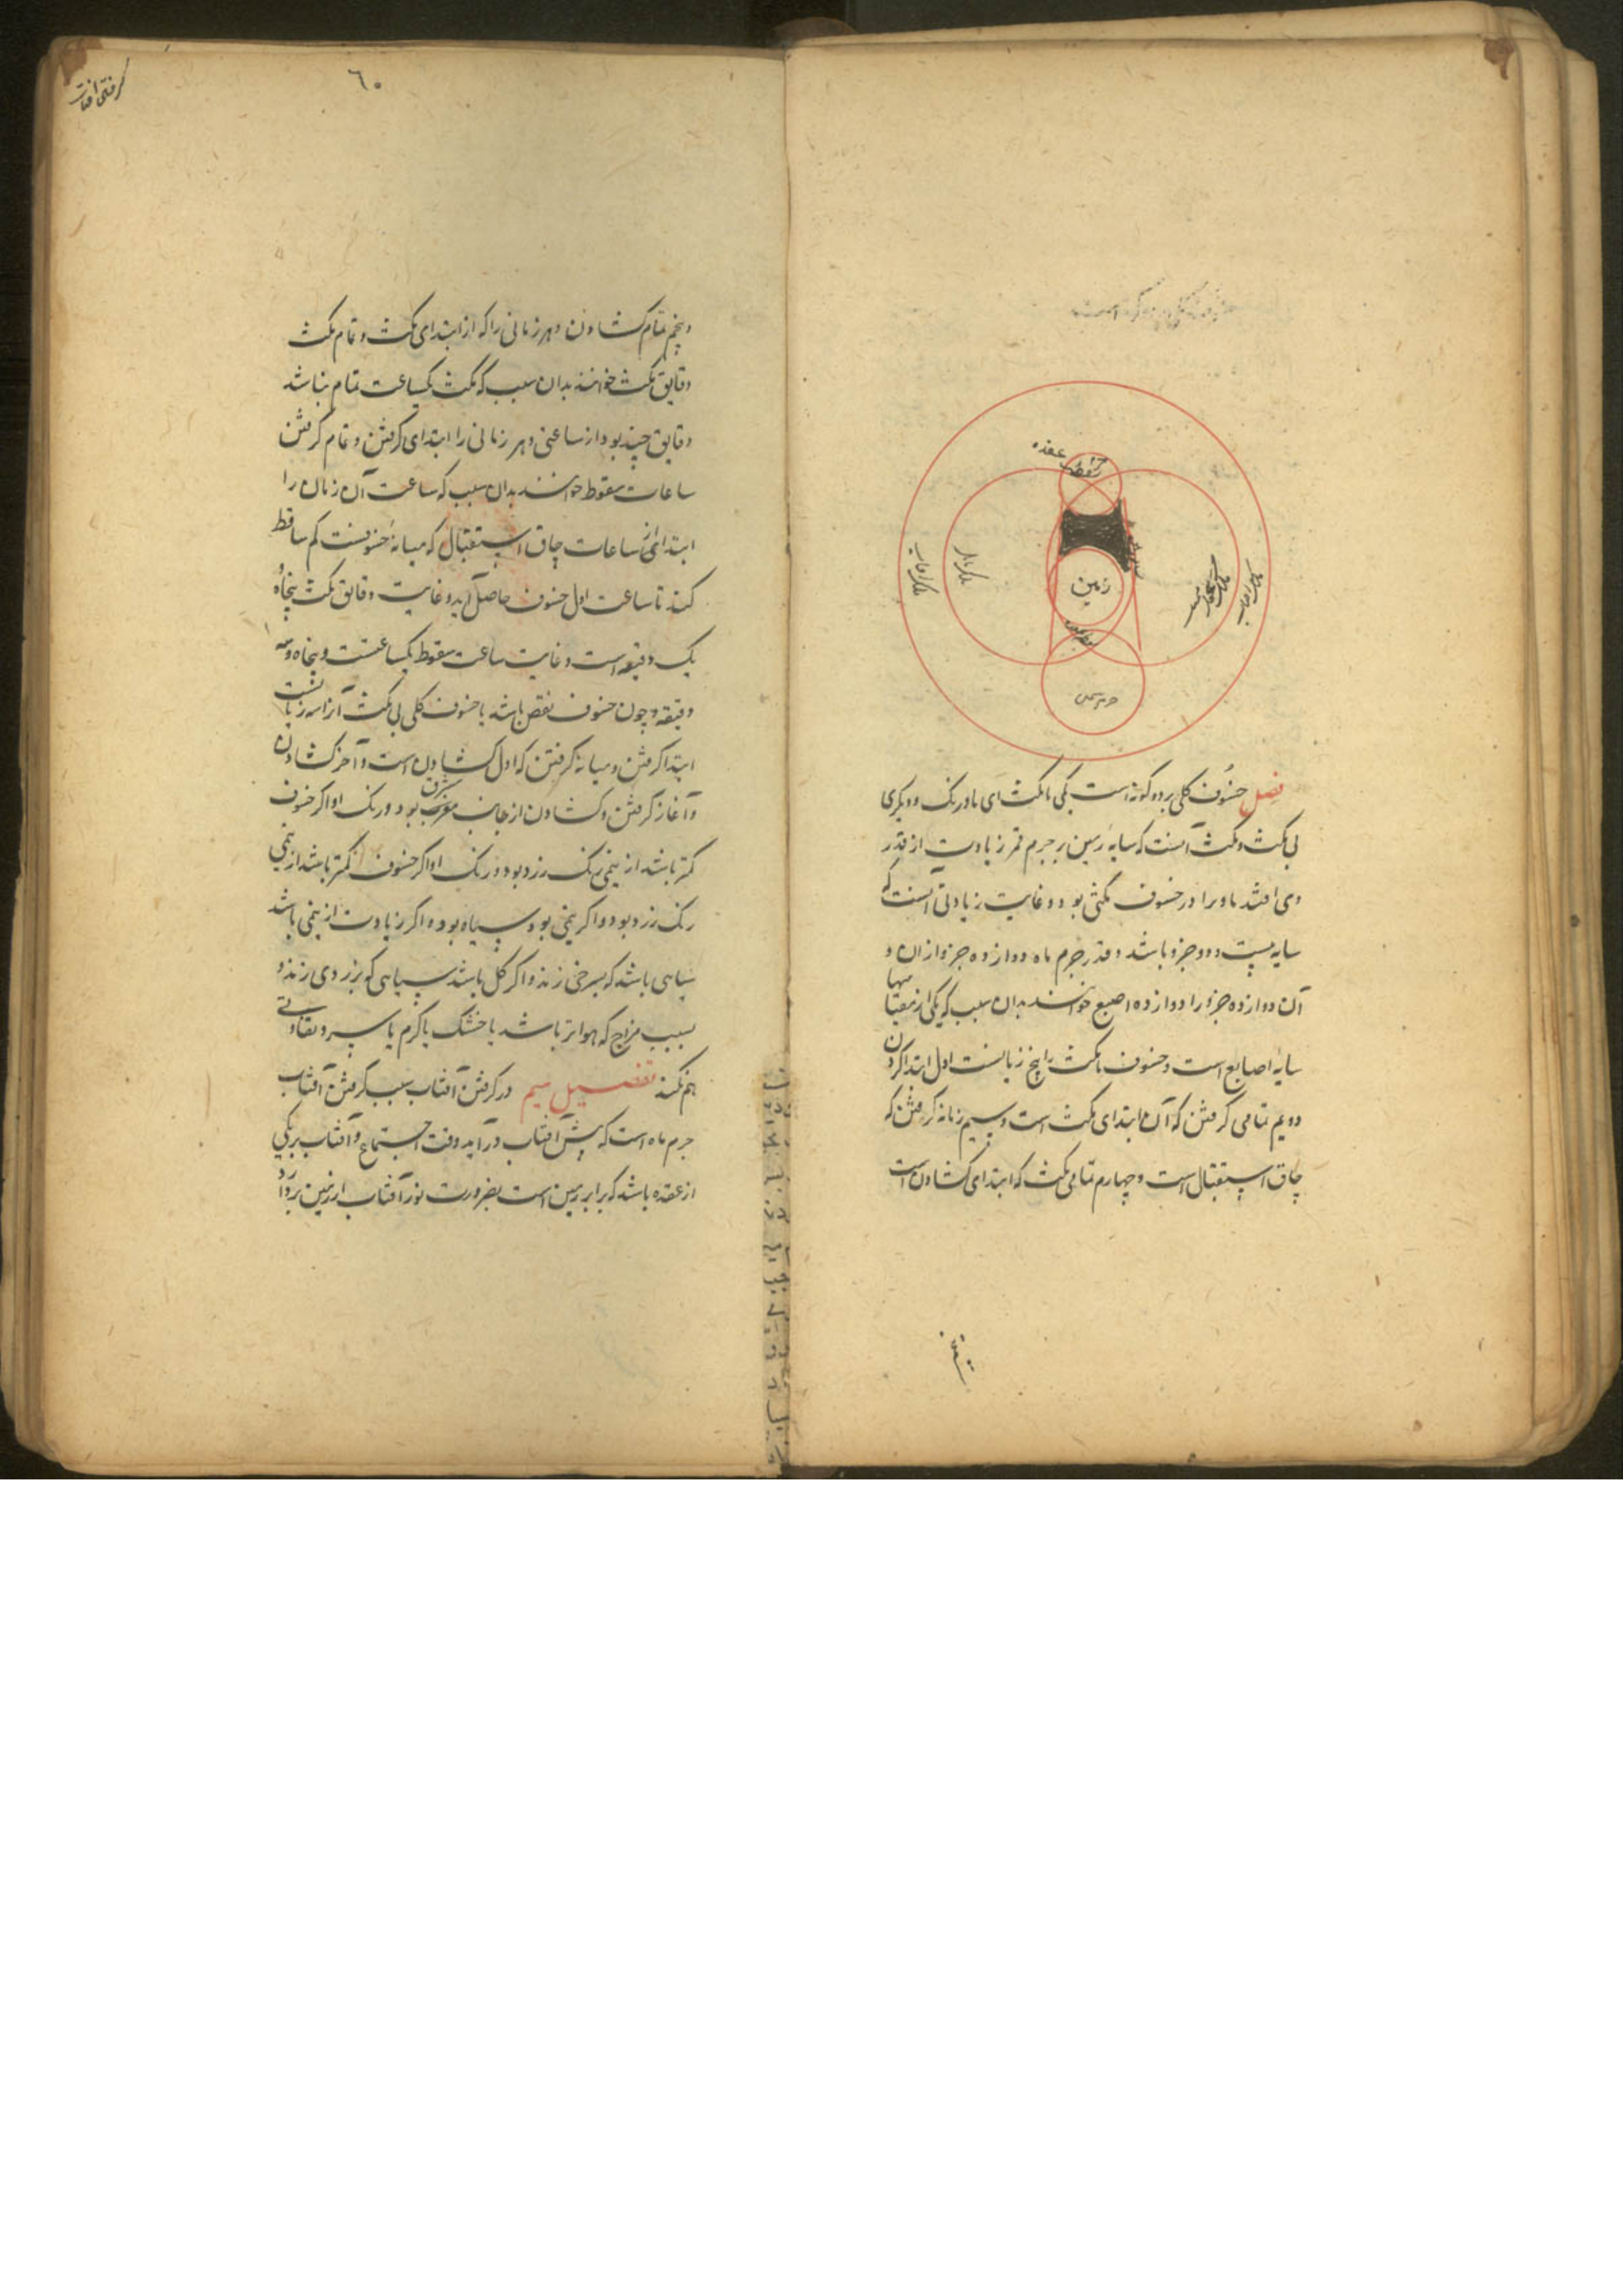 عقده
نقطه
زمین
جرم شمس
فصل خسُوف کلی بر دو گونه است یکی با مکث ای با درنک و دیگری
بی مکث و مکث آنست که سایهٔ زمین بر جرم قمر زیادت از قدر
وی افتد ماه را در خسوف مکثی بود و غایت زیادتی آنست که
سایه بیست و دو جزو باشد و قدر جرم ماه دوازده جزو از ان و
آن دوازده جزو را دوازده اصبع خوانند بدان سبب که یکی از مقیاسها
سایه اصابع است و خسوف با مکث را پنج زمانست اول ابتدا کردن
دویم تمامی گرفتن که آن ابتدای مکث است و سیم میانه گرفتن که
چاق استقبال است و چهارم تمامی مکث که ابتدای کشادن است
گرفتن آفتاب
٦٠
و پنجم تمام کشادن و هر زمانی را که از ابتدای مکث و تمام مکث
دقایق مکث خوانند بدان سبب که مکث یکساعت تمام نباشد
دقایق چند بود از ساعتی و هر زمانی را ابتدای گرفتن و تمام گرفتن
ساعات سقوط خوانند بدان سبب که ساعت آن زمان را
ابتدای از ساعات چاق استقبال که میانهٔ خسوفست کم ساقط
کنند تا ساعت اول خسوف حاصل آید و غایت دقایق مکث پنجاه
یک دقیقه است و غایت ساعت سقوط یکساعتست و پنجاه و سه
دقیقه و چون خسوف نقص باشد یا خسوف کلی بی مکث آنرا سه زمانست
ابتدا گرفتن و میانه گرفتن که اول کشادن است و آخر کشادن
و آغاز گرفتن و کشادن از جانب مغرب مشرق بود و رنک او اگر خسوف
کمتر باشد از نیمی رنک زرد بود و رنک او اگر خسوف کمتر باشد از نیمی
رنک زرد بود و اگر نیمی بود سیاه بود و اگر زیادت از نیمی باشد
سیاهی باشد که بسرخی زند و اگر کل باشد سیاهی که بزردی زند و
بسبب مزاج که هوا تر باشد یا خشک یا گرم یا سرد تفاوتی
هم کند تفصیل سیم در گرفتن آفتاب سبب گرفتن آفتاب
جرم ماه است که پیش آفتاب در آید وقت اجتماع و آفتاب بر یکی
از عقده باشد که برابر زمین است بضرورت نور آفتاب از زمین بردارد